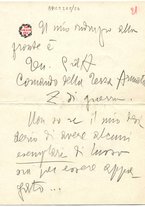 Il mio indirizzo alla
fronte è
Comando della Terza Armata
Z. di guerra.
Non so se il mio desi
derio di avere alcuni
esemplari di lusso
per essere appa
gato...